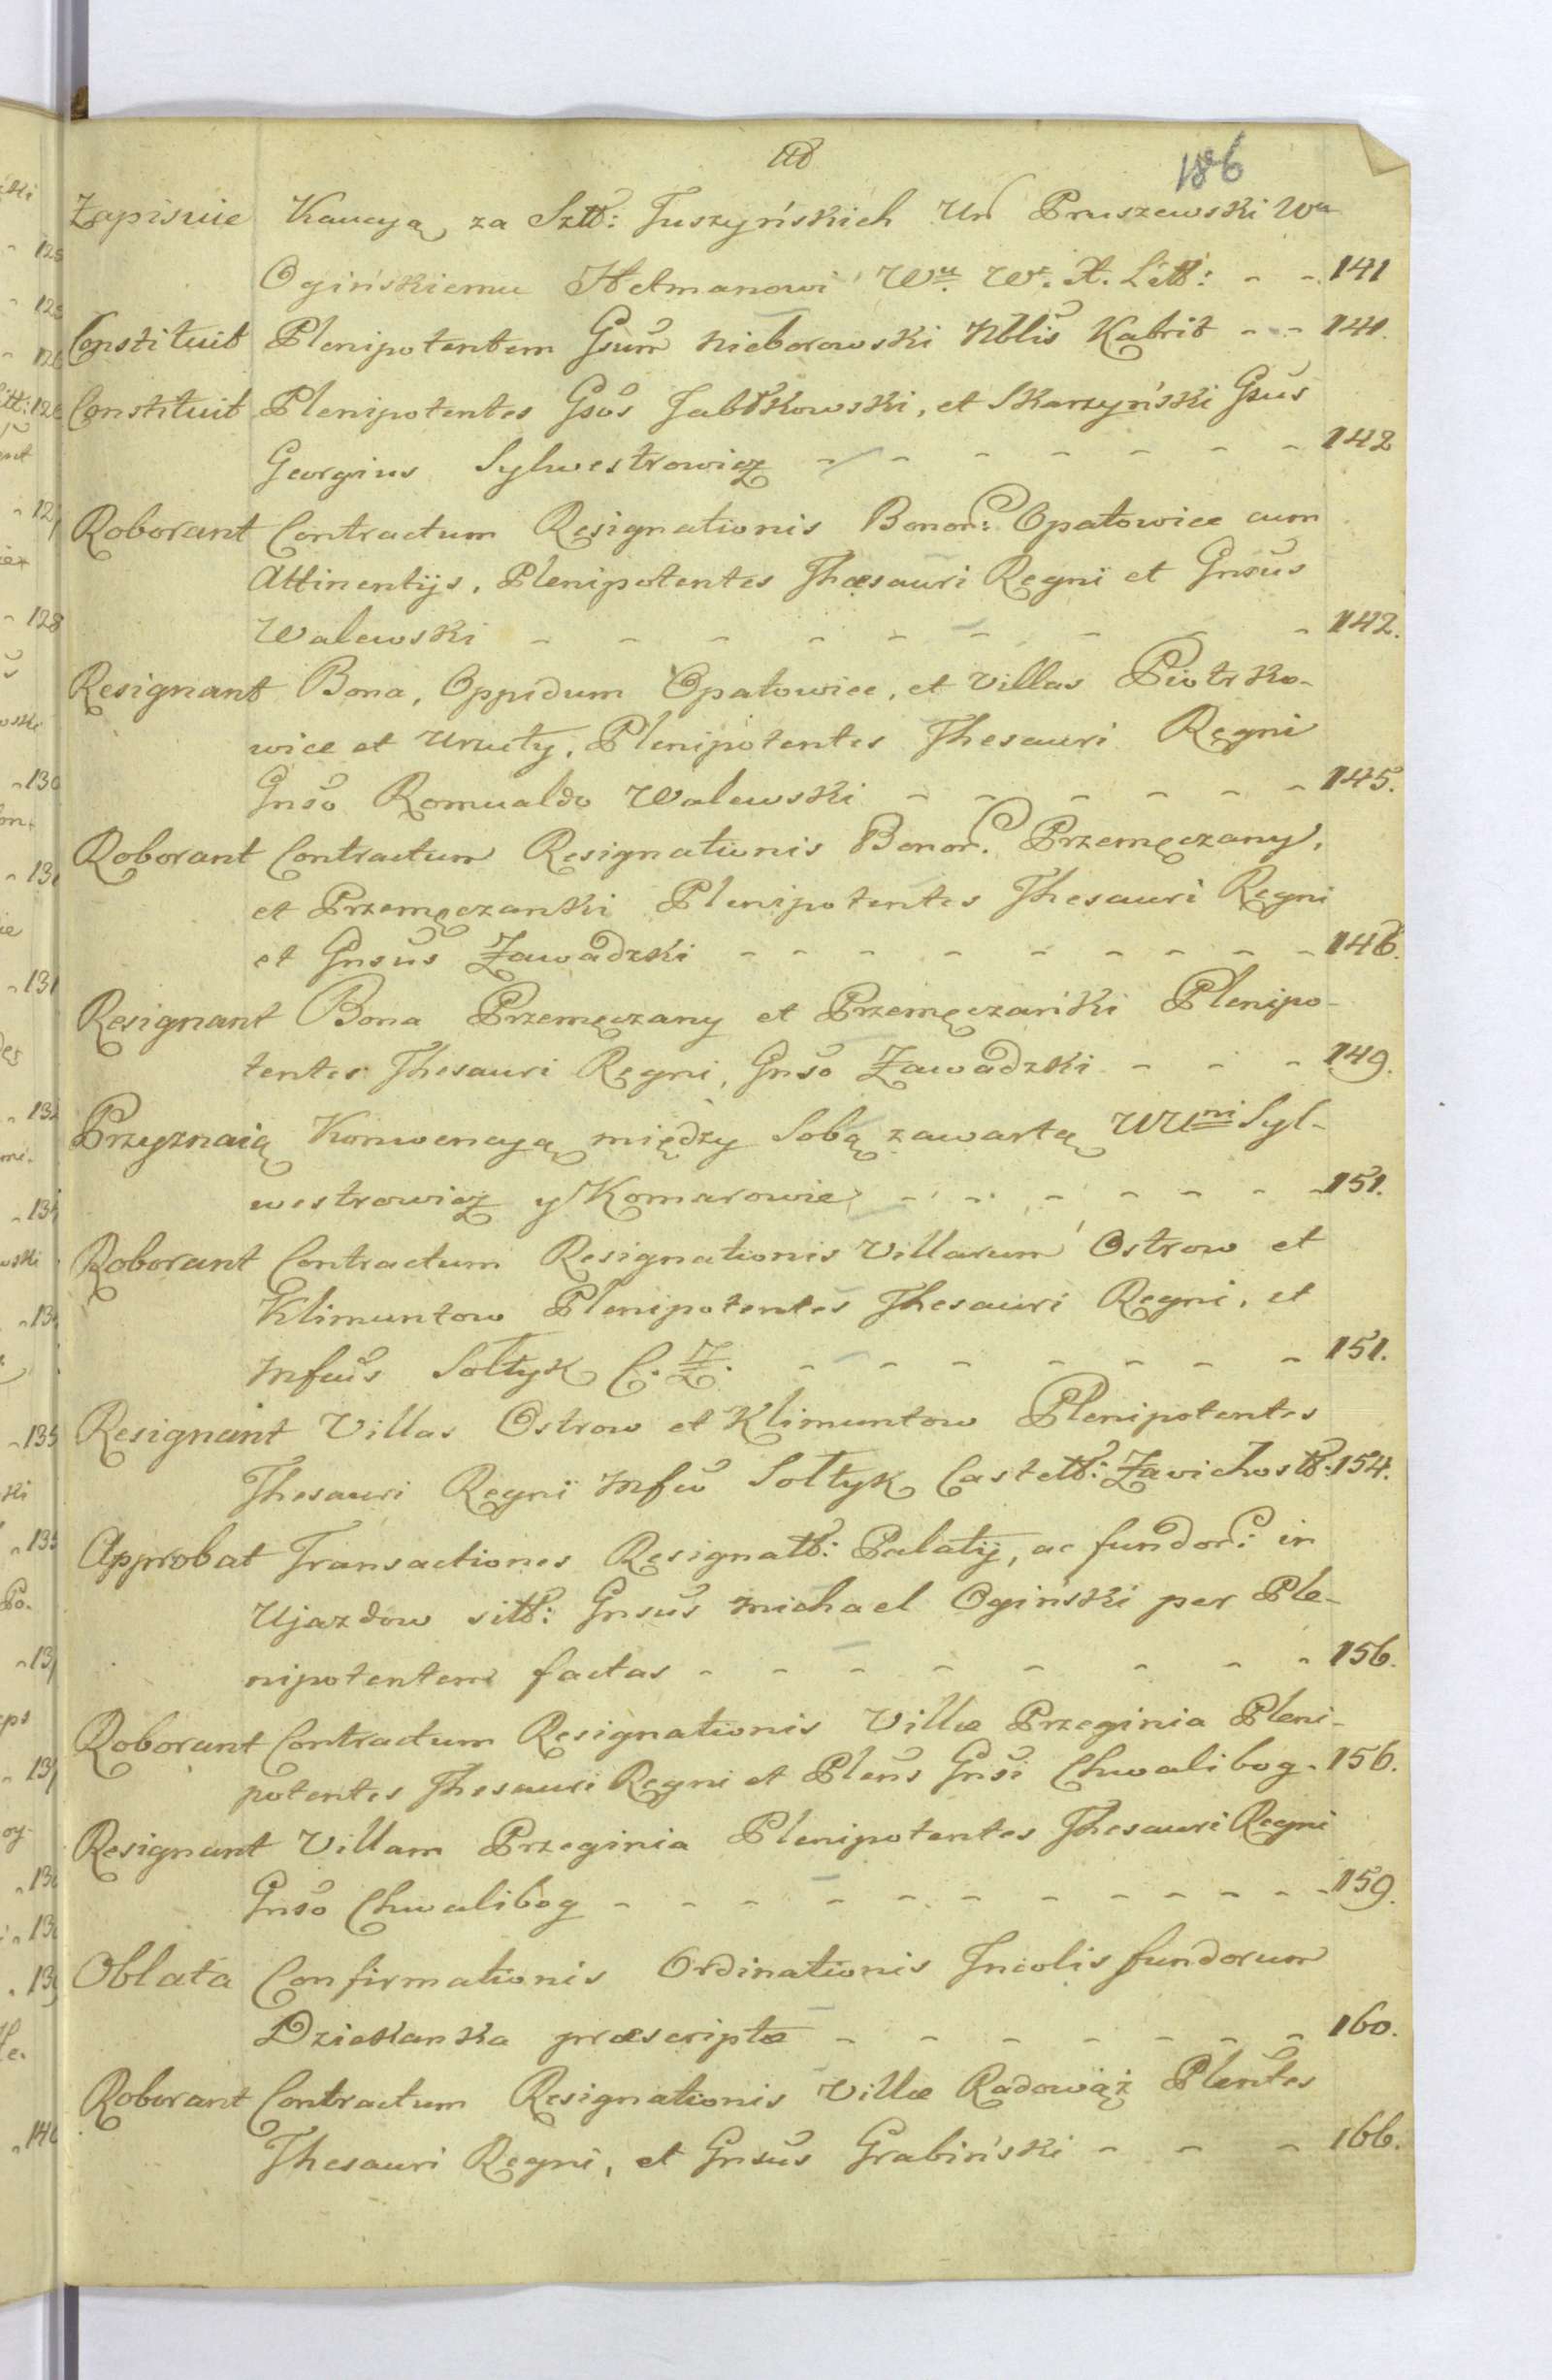 186
Zapisuie Kaucyą za Sztt: Tuszyńskich Ur Pruszewski Wu
Ogińskiemu Hetmanowi Wu. W. X. Litt: - - 141
Constituit Plenipotentem Gsum Nieborowski Nblis Kabrit - - 141.
Constituit Plenipotentes Gsos Jabłkowski, et Skarzyński Gsus
Georgius Sylwestrowicz - - - - - - - 142
Roborant Contractum Resignationis Bonor: Opatowice cum
Attinentijs, Plenipotentes Thesauri Regni et Gnsus
Walewski - - - - - - - - 142.
Resignant Bona, Oppidum Opatowice, et Villas Piotrko-
wice et Urzuty, Plenipotentes Thesauri Regni
Gnso Romualdo Walewski - - - - - - 145.
Roborant Contractum Resignationis Bonor. Przemęczany,
et Przemęczanki Plenipotentes Thesauri Regni
et Gnsus Zawadzki - - - - - - - - 146.
Resignant Bona Przemęczany et Przemęczańki Plenipo-
tentes Thesauri Regni, Gnso Zawadzki - - - 149.
Przyznaią Konwencyą między Sobą zawartą WUrni Syl-
westrowicz y Komarowie - - - - - - - 151.
Roborant Contractum Resignationis Villarum Ostrow et
Klimuntow Plenipotentes Thesauri Regni, et
Mfus Sołtyk C. Z. - - - - - - - - 151.
Resignant Villas Ostrow et Klimuntow Plenipotentes
Thesauri Regni Mfo Sołtyk Castell: Zavichostt: 154.
Approbat Transactiones Resignatt: Palatij, ac fundor: in
Ujazdow sitt: Gnsus Michael Ogiński per Ple-
nipotentem factas - - - - - - - - 156.
Roborant Contractum Resignationis Villæ Przeginia Pleni-
potentes Thesauri Regni et Plens Gnsi Chwalibog - 156.
Resignant Villam Przeginia Plenipotentes Thesauri Regni
Gnso Chwalibog - - - - - - - - - - 159.
Oblata Confirmationis Ordinationis Incolis fundorum
Dziekanka præscriptæ - - - - - - - 160.
Roborant Contractum Resignationis Villæ Radowąż Plentes
Thesauri Regni, et Gnsus Grabiński - - - 166.